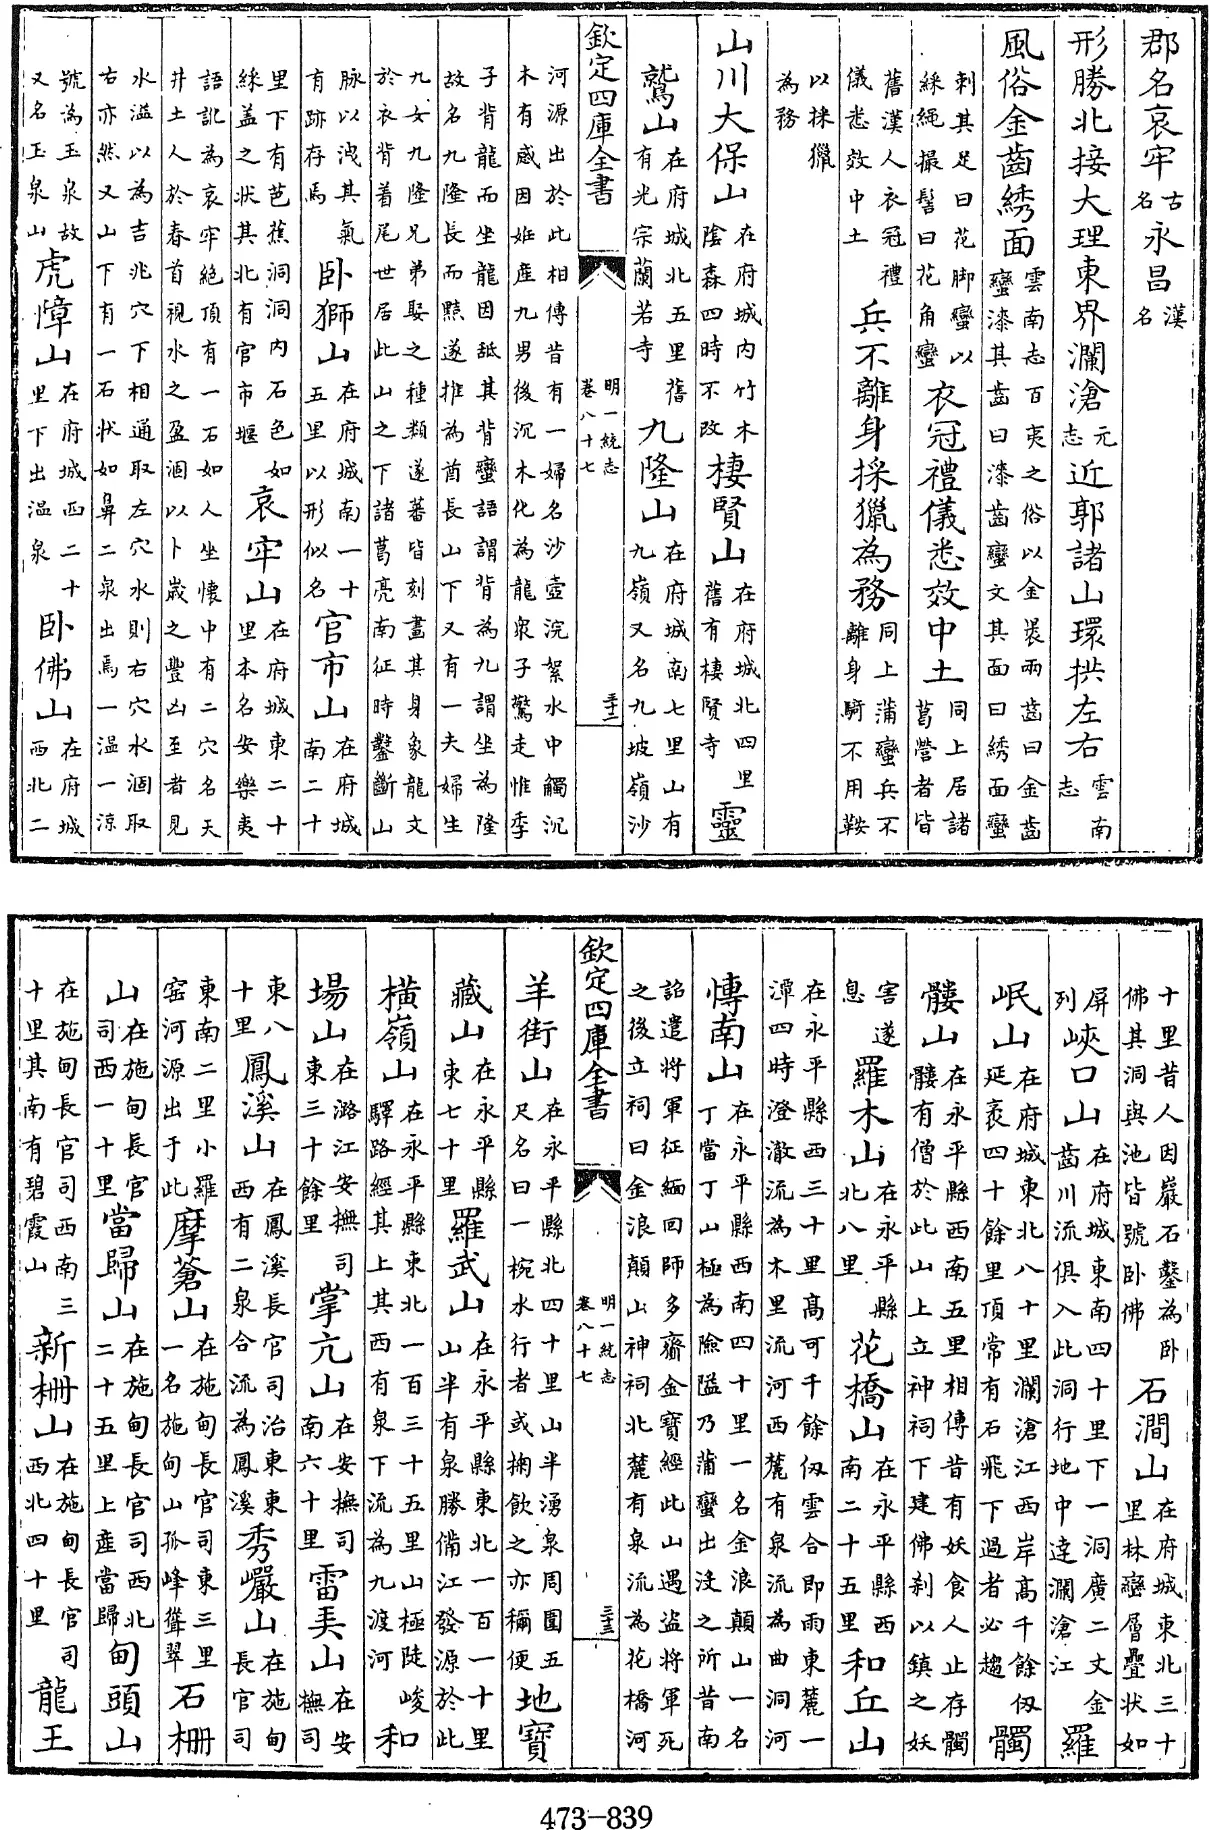 郡名哀牢古名永昌漢名
形勝北接大理東界瀾滄元志近郭諸山環拱左右雲南志
風俗金齒綉面雲南志百夷之俗以金裹兩齒曰金齒蠻漆其齒曰漆齒蠻文其面曰綉面蠻
刺其足曰花脚蠻以綵繩撮髻曰花角蠻衣冠禮儀悉效中土同上居諸葛營者皆
舊漢人衣冠禮儀悉效中土兵不離身採獵為務同上蒲蠻兵不離身騎不用鞍
以採獵為務
山川大保山在府城内竹木陰森四時不改棲賢山在府城北四里舊有棲賢寺靈
鷲山在府城北五里舊有光宗蘭若寺九隆山在府城南七里山有九嶺又名九坡嶺沙
欽定四庫全書 明一統志卷八十七 三十二
河源出於此相傳昔有一婦名沙壺浣絮水中觸沉木有感因姙産九男後沉木化為龍衆子驚走惟季
子背龍而坐龍因舐其背蠻語謂背為九謂坐為隆故名九隆長而黠遂推為酋長山下又有一夫婦生
九女九隆兄弟娶之種類遂蕃皆刻畫其身象龍文於衣背着尾世居此山之下諸葛亮南征時鑿斷山
脉以洩其氣有跡存焉卧獅山在府城南一十五里以形似名官市山在府城南二十
里下有芭蕉洞洞内石色如綵盖之状其北有官市堰哀牢山在府城東二十里本名安樂夷
語訛為哀牢絶頂有一石如人坐懷中有二穴名天井土人於春首視水之盈涸以卜嵗之豐凶至者見
水溢以為吉兆穴下相通取左穴水則右穴水涸取右亦然又山下有一石状如鼻二泉出焉一温一涼
號為玉泉故又名玉泉山虎嶂山在府城西二十里下出温泉卧佛山在府城西北二
十里昔人因巖石鑿為卧佛其洞與池皆號卧佛石澗山在府城東北三十里林巒層疊状如
屏列峽口山在府城東南四十里下一洞廣二丈金齒川流俱入此洞行地中逹瀾滄江羅
岷山在府城東北八十里瀾滄江西岸高千餘仭延袤四十餘里頂常有石飛下過者必趨髑
髏山在永平縣西南五里相傳昔有妖食人止存髑髏有僧於此山上立神祠下建佛刹以鎮之妖
害遂息羅木山在永平縣北八里花橋山在永平縣西南二十五里和丘山
在永平縣西三十里高可千餘仭雲合即雨東麓一潭四時澄澈流為木里流河西麓有泉流為曲洞河
慱南山在永平縣西南四十里一名金浪顛山一名丁當丁山極為險隘乃蒲蠻出没之所昔南
詔遣將軍征緬回師多齎金寶經此山遇盜將軍死之後立祠曰金浪顛山神祠北麓有泉流為花橋河
欽定四庫全書 明一統志卷八十七 三十三
羊街山在永平縣北四十里山半湧泉周圍五尺名曰一椀水行者或掬飲之亦稱便地寶
藏山在永平縣東七十里羅武山在永平縣東北一百一十里山半有泉勝備江發源於此
橫嶺山在永平縣東北一百三十五里山極陡峻驛路經其上其西有泉下流為九渡河和
場山在潞江安撫司東三十餘里掌亢山在安撫司南六十里雷弄山在安撫司
東八十里鳳溪山在鳳溪長官司治東東西有二泉合流為鳳溪秀巖山在施甸長官司
東南二里小羅窑河源出于此摩蒼山在施甸長官司東三里一名施甸山孤峰聳翠石柵
山在施甸長官司西一十里當歸山在施甸長官司西北二十五里上産當歸甸頭山
在施甸長官司西南三十里其南有碧霞山新柵山在施甸長官司西北四十里龍王
473-839